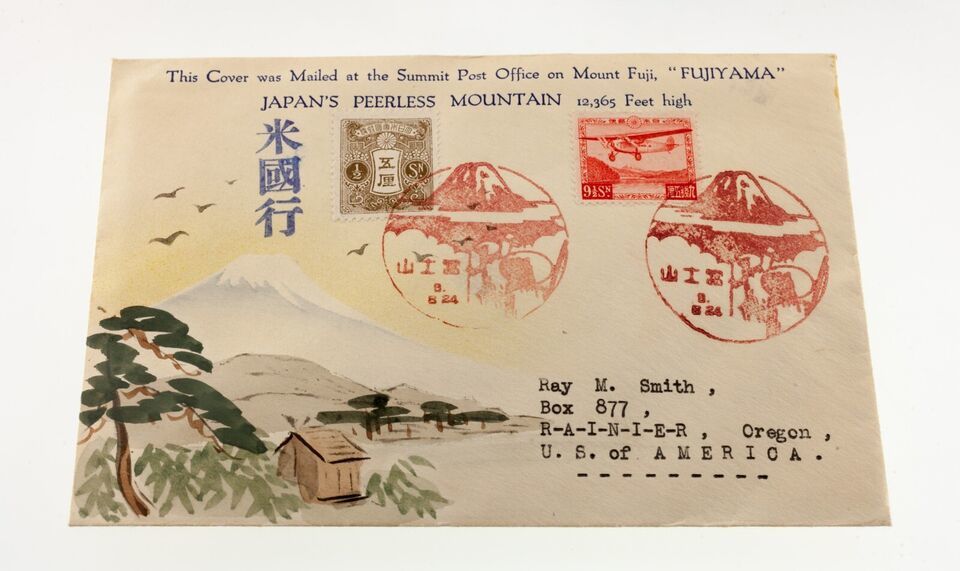 This Cover was Mailed at the Summit Post Office on Mount Fuji, "FUJIYAMA"
JAPAN'S PEERLESS MOUNTAIN 12,365 Feet high
米國行
½ 五厘 SN
9½SN
山士富
8.24
山士富
8.24
Ray M. Smith ,
Box 877 ,
R-A-I-N-I-E-R , Oregon ,
U.S. of AMERICA.
- - - - - - - - - -